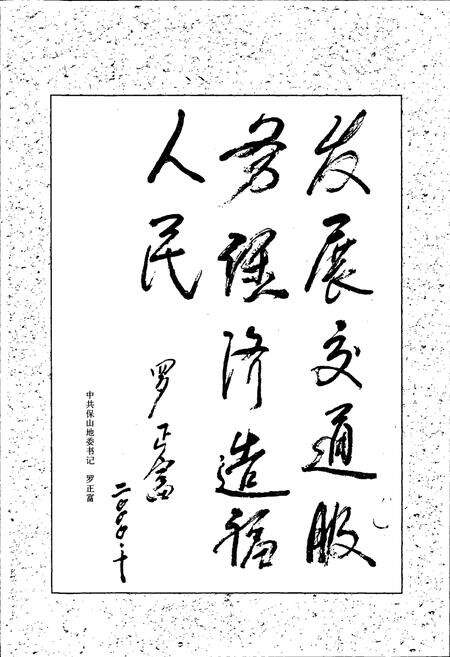 发展交通服
务经济造福
人民
罗正富
二〇〇〇.十
中共保山地委书记 罗正富